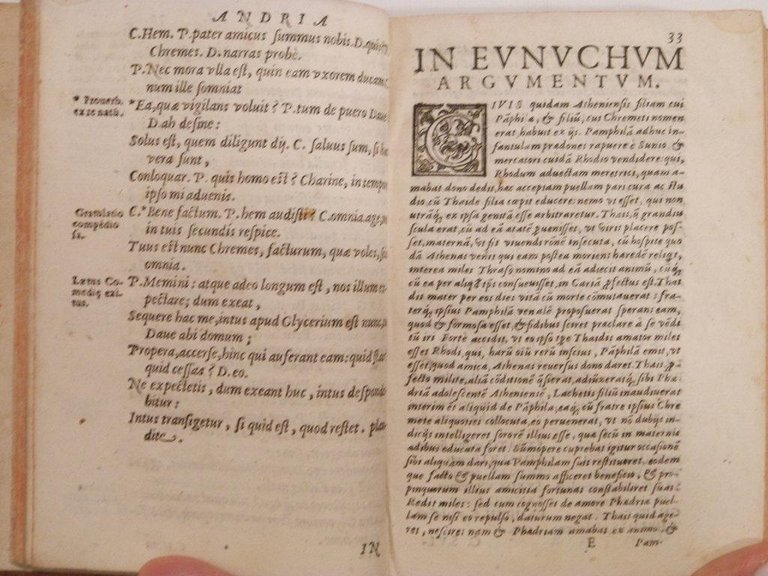 ANDRIA
C. Hem. P. pater amicus summus nobis. D. qui?
Chremes. D. narras probè.
P. Nec mora vlla est, quin eam vxorem ducam.
num ille somniat
* Prouerb.
ex re natū.
*Ea, quæ vigilans voluit? P. tum de puero Daue
D. ah desine:
Solus est, quem diligunt dij. C. saluus sum, si
vera sunt,
Conloquar. P. quis homo est? Charine, in tempore
ipso mi aduenis.
Gratulatio
C.* Bene factum. P. hem audisti? C. omnia. age,
in tuis secundis respice.
Tuus est nunc Chremes, facturum, quæ voles,
omnia.
Lætus Co-
medię exi-
tus.
P. Memini: atque adeo longum est, nos illum ex-
pectare; dum exeat,
Sequere hac me, intus apud Glycerium est nunc,
Daue abi domum;
Propera, accerse, hinc qui auferant eam: quid
quid cessas? D. eo.
Ne expectetis, dum exeant huc, intus despondē-
bitur:
Intus transigetur, si quid est, quod restet.
dite.
IN
33
IN EVNVCHVM
ARGVMENTVM.
CIVIS quidam Atheniensis filiam cui
Pāphilæ, & filiū, cui Chremeti nomen
erat habuit ex ijs. Pamphilā adhuc in-
fantulam prædones rapuere è Sunio &
mercatori cuidā Rhodio vendidere: qui,
Rhodum aduectam meretrici, quam a-
mabat dono dedit, hæc acceptam puellam pari cura ac stu
dio, cū Thaide filia cœpit educere: nemo vt esset, qui non
vtrāq; ex ipsa genitā esse arbitraretur. Thais, grandiu
scula erat, cū ad eā ætatē
set, maternā, vt fit viuendi rationē insecuta, cū hospite quo
dā Athenas venit qui eam postea moriens hæredē reliqt,
interea miles Thraso nomino ad eā adiecit animū, cui,
cū ea per aliqd tps consueuisset, in Cariā pfectus est. Thai
dis mater per eos dies vitā cū morte cōmutauerat: fra-
terq; ipsius Pamphilā venalē proposuerat sperans eam,
quod & formosa esset, & fidibus sciret præclare à se vēdi
tū iri. Forte accidit, vt eo ipso tpe Thaidis amator miles
esset Rhodi, qui, harū oīū rerū inscius, Pāphilā emit, vt
esset quod amicæ, Athenas reuersus dono daret. Thais p
fecto milite, aliā cōditionē
dria adolescentē Atheniensē, Lachetis filiū inaudiuerat
interim et aliquid de Pāphila, eaq; cū fratre ipsius Chre
mete aliquoties collocuta, eo peruenerat, vt nō dubijs in-
dicijs intelligeret sororē illius esse, qua secū in maternis
ædibus educata foret. Sūmopere cupiebat igitur occasionē
sibi aliquam dari, qua Pamphilam suis restitueret. eodem
que facto & puellam summo afficeret beneficio, & pro
pinquorum illius amicitia fortunas constabiliret suas
Redit miles: sed cum cognosces de amore Phædriæ puel-
lam se nisi eo repulso, daturum negat. Thais quid age-
ret, nescire: nam & Phædriam amabat ex animo &
E Pam-